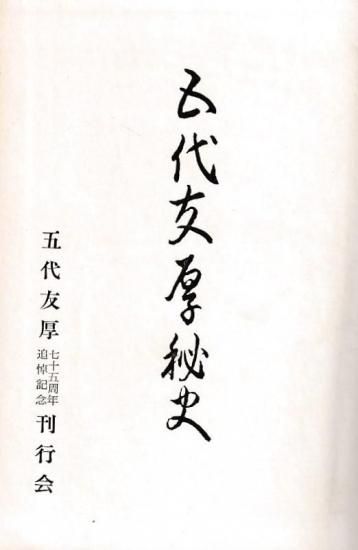 五代友厚秘史
五代友厚七十五周年追悼記念刊行会